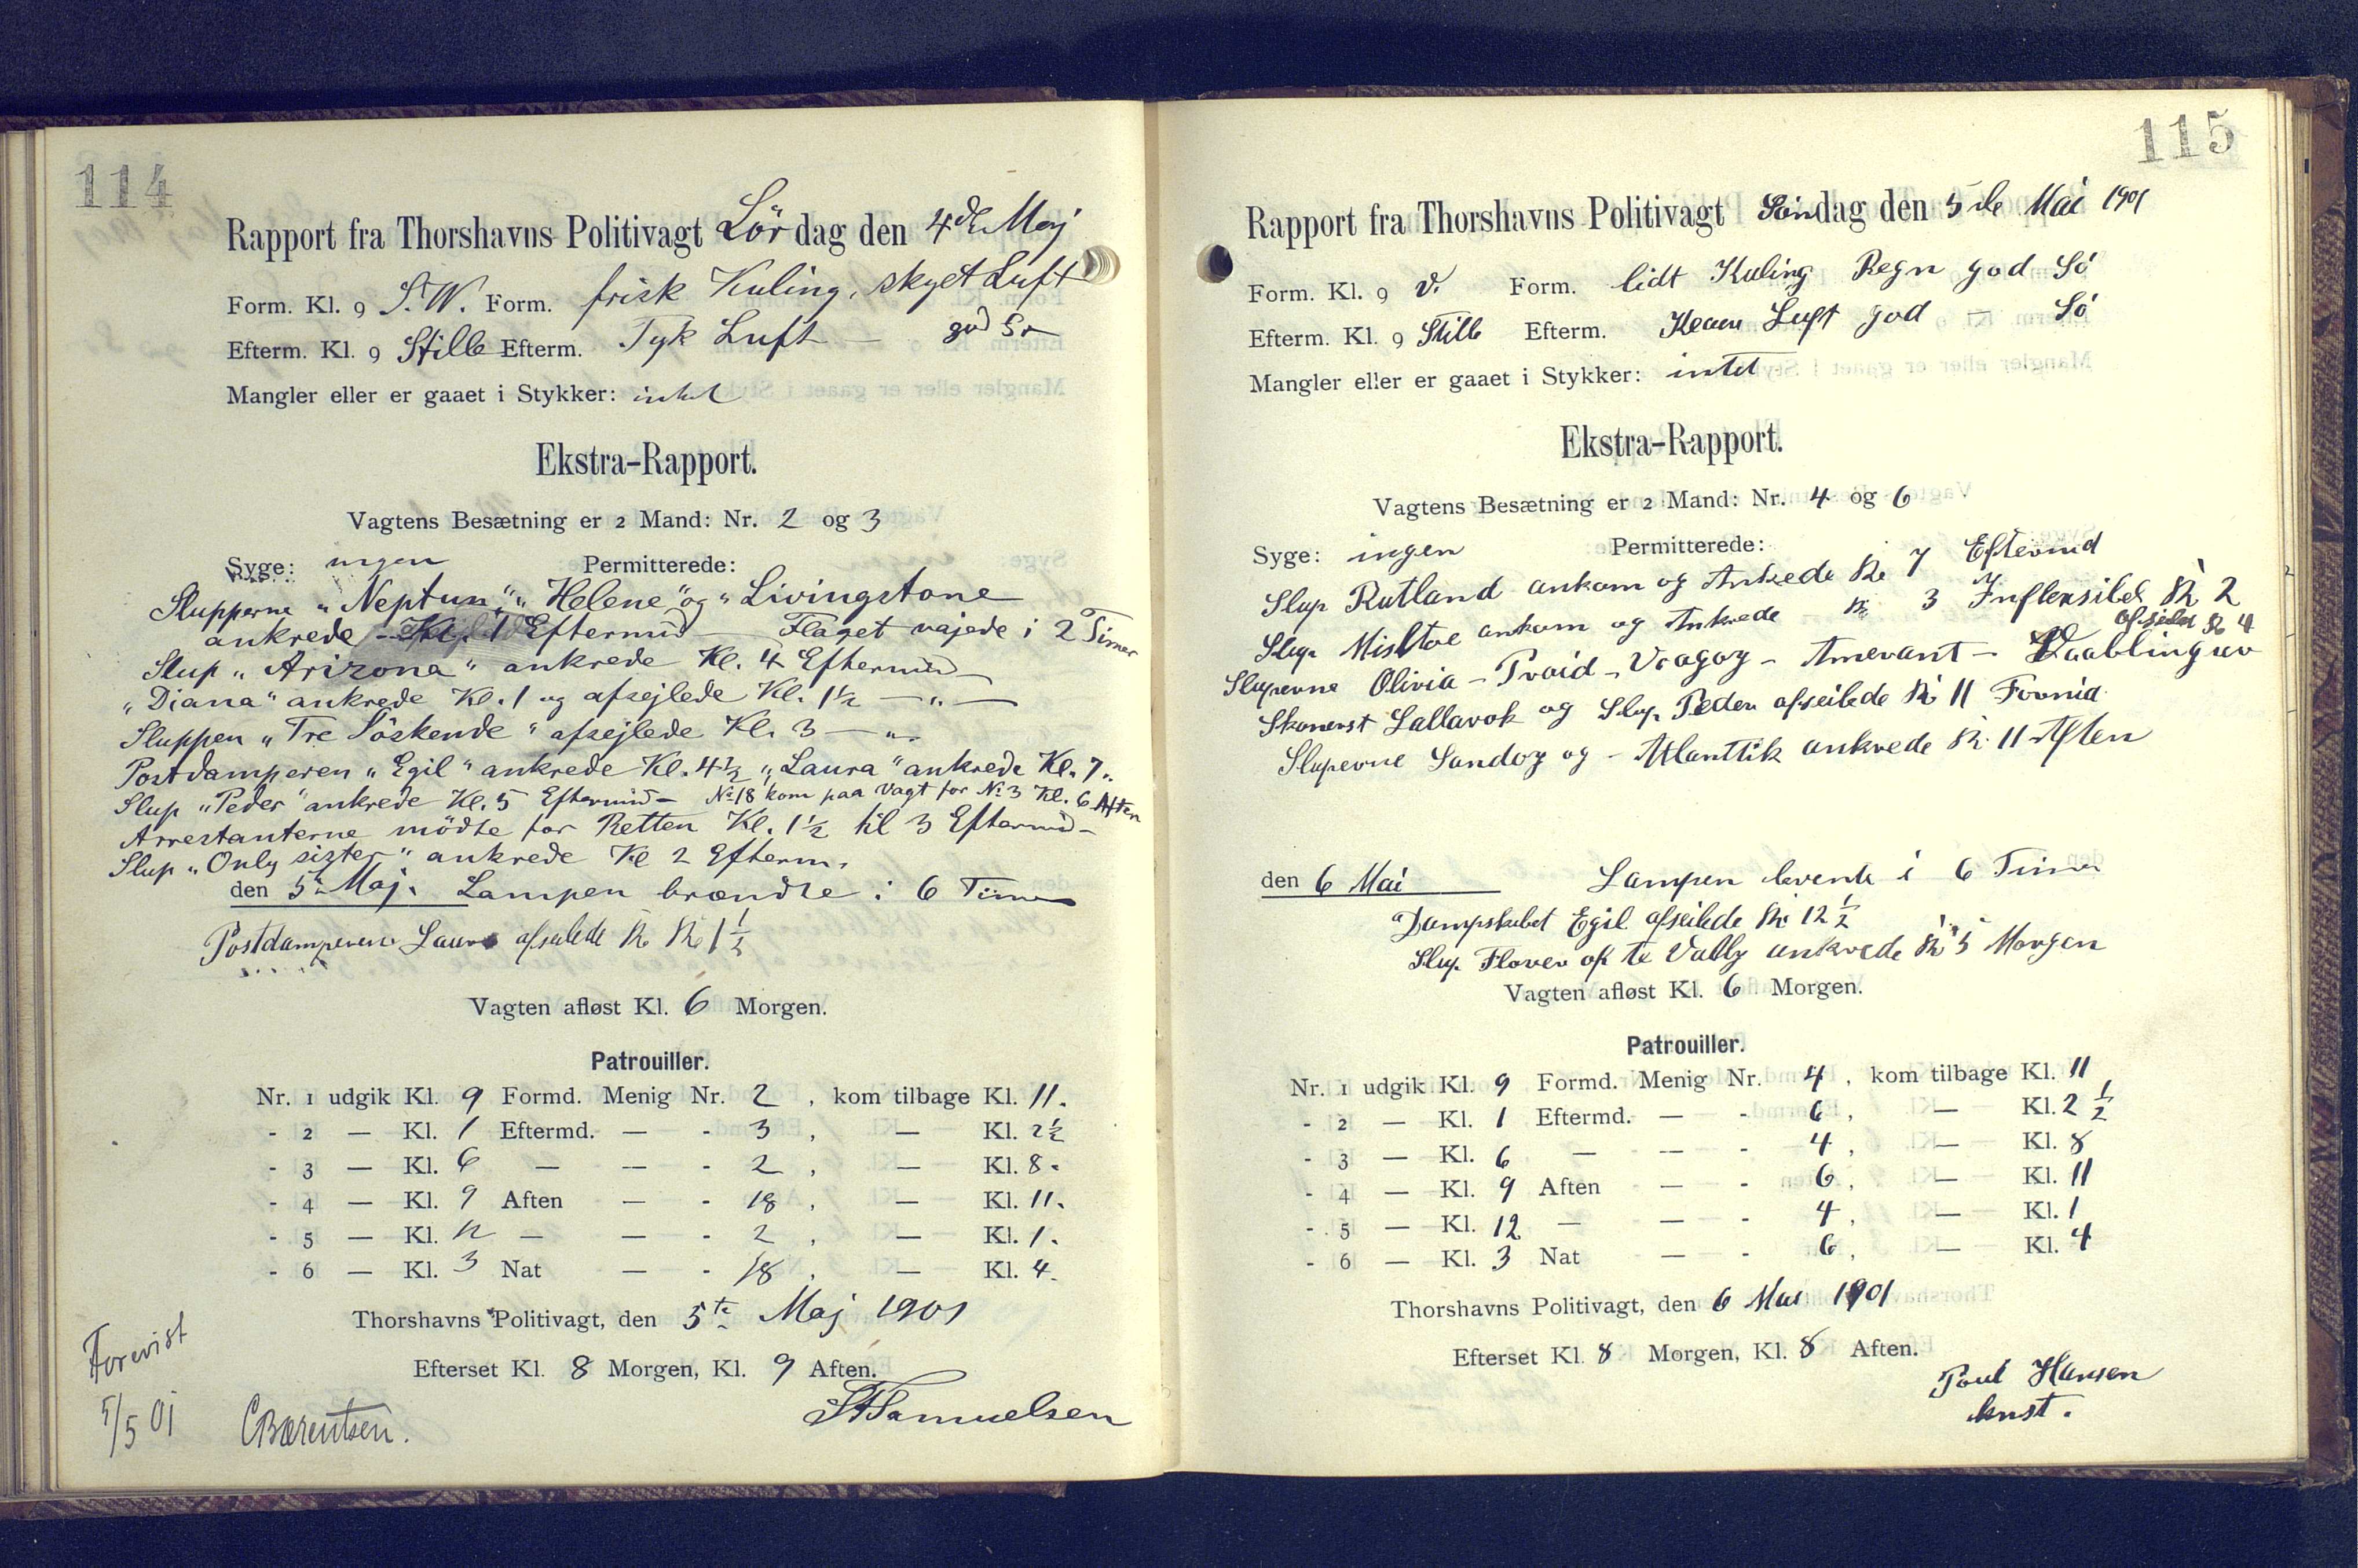 114
Rapport fra Thorshavns Politivagt Lördag den 4de Maj
Form. Kl. 9 S.W. Form. frisk Kuling, skyet Luft
Efterm. Kl. 9 Stille Efterm. Tyk Luft — god Sö
Mangler eller er gaaet i Stykker: intet
Ekstra-Rapport.
Vagtens Besætning er 2 Mand: Nr. 2 og 3
Syge: ingen Permitterede:
Slupperne „Neptun", „Helene" og „Livingstone
ankrede Kl. 1 Eftermid — Flaget vajede i 2 Timer
Slup „Arizona" ankrede Kl. 4 Eftermid —
„Diana" ankrede Kl. 1 og afsejlede Kl. 1½ — „ —
Sluppen „Tre Söskende" afsejlede Kl. 3 — „ -
Postdamperen „Egil" ankrede Kl. 4½ „Laura" ankrede Kl. 7 „
Slup „Peder" ankrede Kl. 5 Eftermid — No 18 kom paa Vagt for No 3 Kl. 6 Aften
Arrestanterne mödte for Retten Kl. 1½ til 3 Eftermid —
Slup „Only sister" ankrede Kl 2 Efterm.
den 5te Maj. Lampen brændte i 6 Timer
Postdamperen Laura afseilede Kl Kl 1½
Vagten afløst Kl. 6 Morgen.
Patrouiller.
Nr. 1 udgik Kl. 9 Formd. Menig Nr. 2, kom tilbage Kl. 11.
- 2 — Kl. 1 Eftermd. — - 3, — Kl. 2½
- 3 — Kl. 6 — — - 2, — Kl. 8.
- 4 — Kl. 9 Aften — - 18, — Kl. 11.
- 5 — Kl. 12 — — - 2, — Kl. 1.
- 6 — Kl. 3 Nat — - 18, — Kl. 4.
Thorshavns Politivagt, den 5te Maj 1901
Efterset Kl. 8 Morgen, Kl. 9 Aften.
Samuelsen
Forevist
5/5 01
CBærentsen.
115
Rapport fra Thorshavns Politivagt Søndag den 5de Mai 1901
Form. Kl. 9 V. Form. lidt Kuling Regn god Sö
Efterm. Kl. 9 Stille Efterm. Luft god — Sö
Mangler eller er gaaet i Stykker: intet
Ekstra-Rapport.
Vagtens Besætning er 2 Mand: Nr. 4 og 6
Syge: ingen Permitterede:
Slup Rutland ankom og Ankrede Kl 7 Eftermid
Slup Misltoe ankom og Ankrede — Kl 3 Inflexsibel Kl 2
afseilede Kl 4
Sluperne Olivia — Proid — Vragoy — Amerant —
Skonerst Lallarok og Slup Peder afseilede Kl 11 Formid
Sluperne Sandoy og — Atlanttik ankrede Kl. 11 Aften
den 6 Mai Lampen brente i 6 Timer
Dampskibet Egil afseilede Kl 12½
Slup Flover of te Vally ankrede Kl 5 Morgen
Vagten afløst Kl. 6 Morgen.
Patrouiller.
Nr. 1 udgik Kl. 9 Formd. Menig Nr. 4, kom tilbage Kl. 11
- 2 — Kl. 1 Eftermd. — - 6, — Kl. 2½
- 3 — Kl. 6 — — - 4, — Kl. 8
- 4 — Kl. 9 Aften — - 6, — Kl. 11
- 5 — Kl. 12 — — - 4, — Kl. 1
- 6 — Kl. 3 Nat — - 6, — Kl. 4
Thorshavns Politivagt, den 6 Mai 1901
Efterset Kl. 8 Morgen, Kl. 8 Aften.
Poul Hansen
knst.